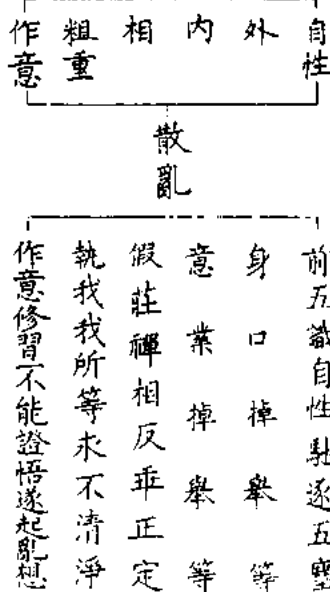 自性
外
内
相
粗重
作意
散亂
前五識自性馳逐五塵
身口掉舉等
意業掉舉等
假莊禪相反乖正定
執我我所等永不清淨
作意修習不能證悟遂起亂想